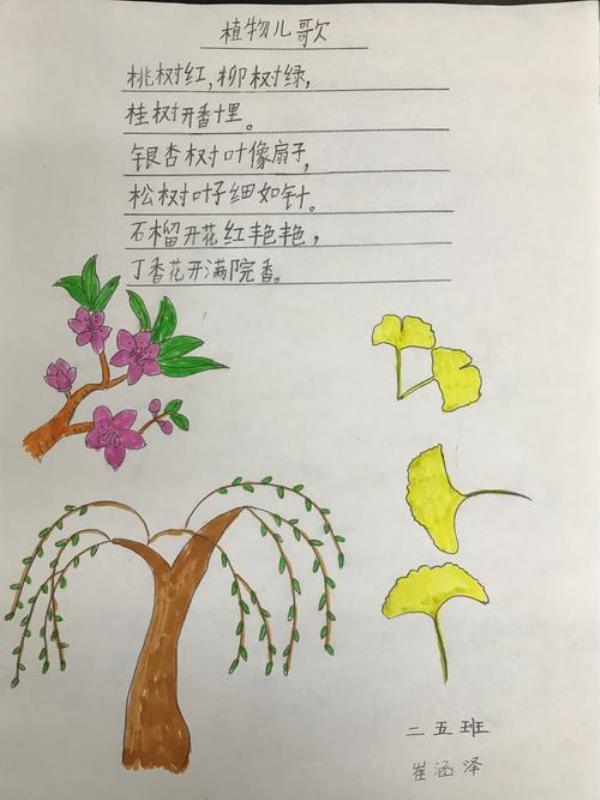 植物儿歌
桃树红,柳树绿,
桂树开香十里。
银杏树叶像扇子,
松树叶子细如针。
石榴开花红艳艳,
丁香花开满院香。
二五班
崔涵泽